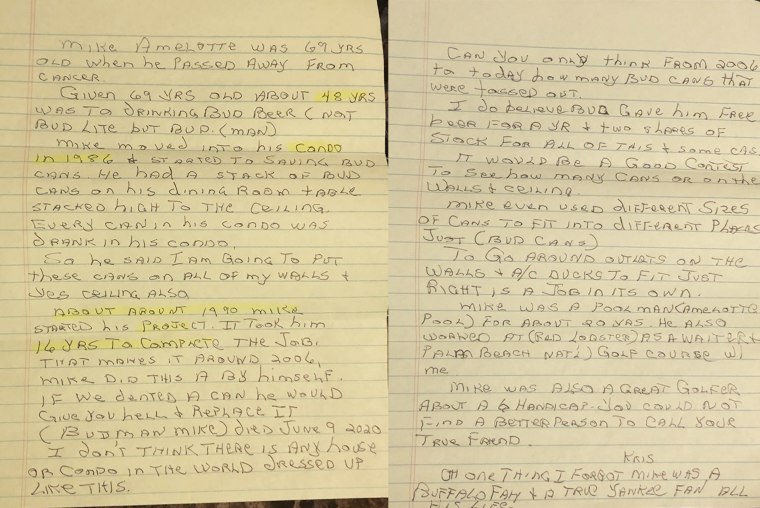 Mike Amelotte was 69 yrs
old when he passed away from
cancer.
Given 69 yrs old about 48 yrs
was to drinking Bud Beer (not
Bud Lite but Bud. (man)
Mike moved into his condo
in 1986 & started to saving Bud
cans. He had a stack of Bud
cans on his dining room table
stacked high to the ceiling.
Every can in his condo was
drank in his condo.
So he said I am going to put
these cans on all of my walls &
yes ceiling also
About around 1990 Mike
started his project. It took him
16 yrs to complete the job.
That makes it around 2006.
Mike did this a by himself.
If we dented a can he would
give you hell & replace it
(Budman Mike) died June 9 2020
I don't think there is any house
or condo in the world dressed up
like this.
Can you only think from 2006
to today how many Bud cans that
were tossed out.
I do believe Bud gave him free
beer for a yr & two shares of
stock for all of this & some cas.
It would be a good contest
to see how many cans or on the
walls & ceiling.
Mike even used different sizes
of cans to fit into different places
just (Bud cans)
To go around outlets on the
walls & A/C ducks to fit just
right is a job in its own.
Mike was a pool man (Amelotte
Pool) for about 20 yrs. He also
worked at (Red Lobster) as a waiter &
Palm Beach Nat'l) golf course w/
me
Mike was also a great golfer
about a 6 handicap. You could not
find a better person to call your
true friend.
Kris
Oh one thing I forgot Mike was a
Buffalo fan & a true Yankee fan all
his life.